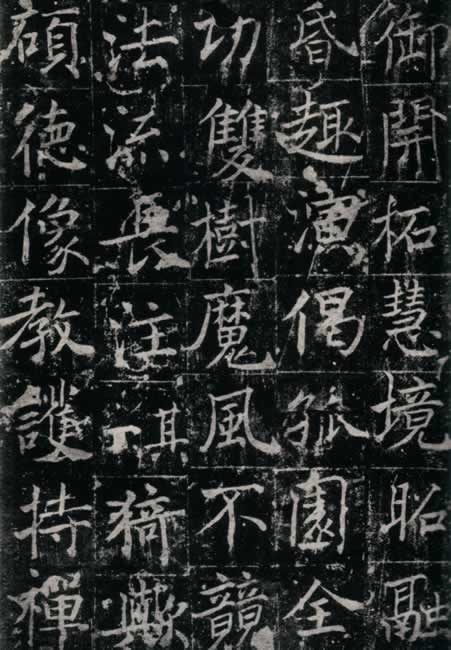 御開柘慧境昭融
昏趣演偈孤園全
功雙樹魔風不
法流長注其丁猗歟
碩德像教護持禪